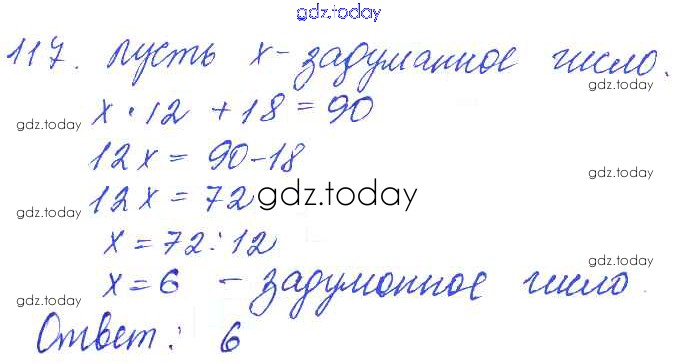 gdz.today
117. Пусть x - задуманное число.
gdz.today
x · 12 + 18 = 90
gdz.today
12x = 90 - 18
gdz.today
12x = 72
gdz.today
gdz.today
x = 72 : 12
gdz.today
x = 6 - задуманное число.
gdz.today
Ответ: 6